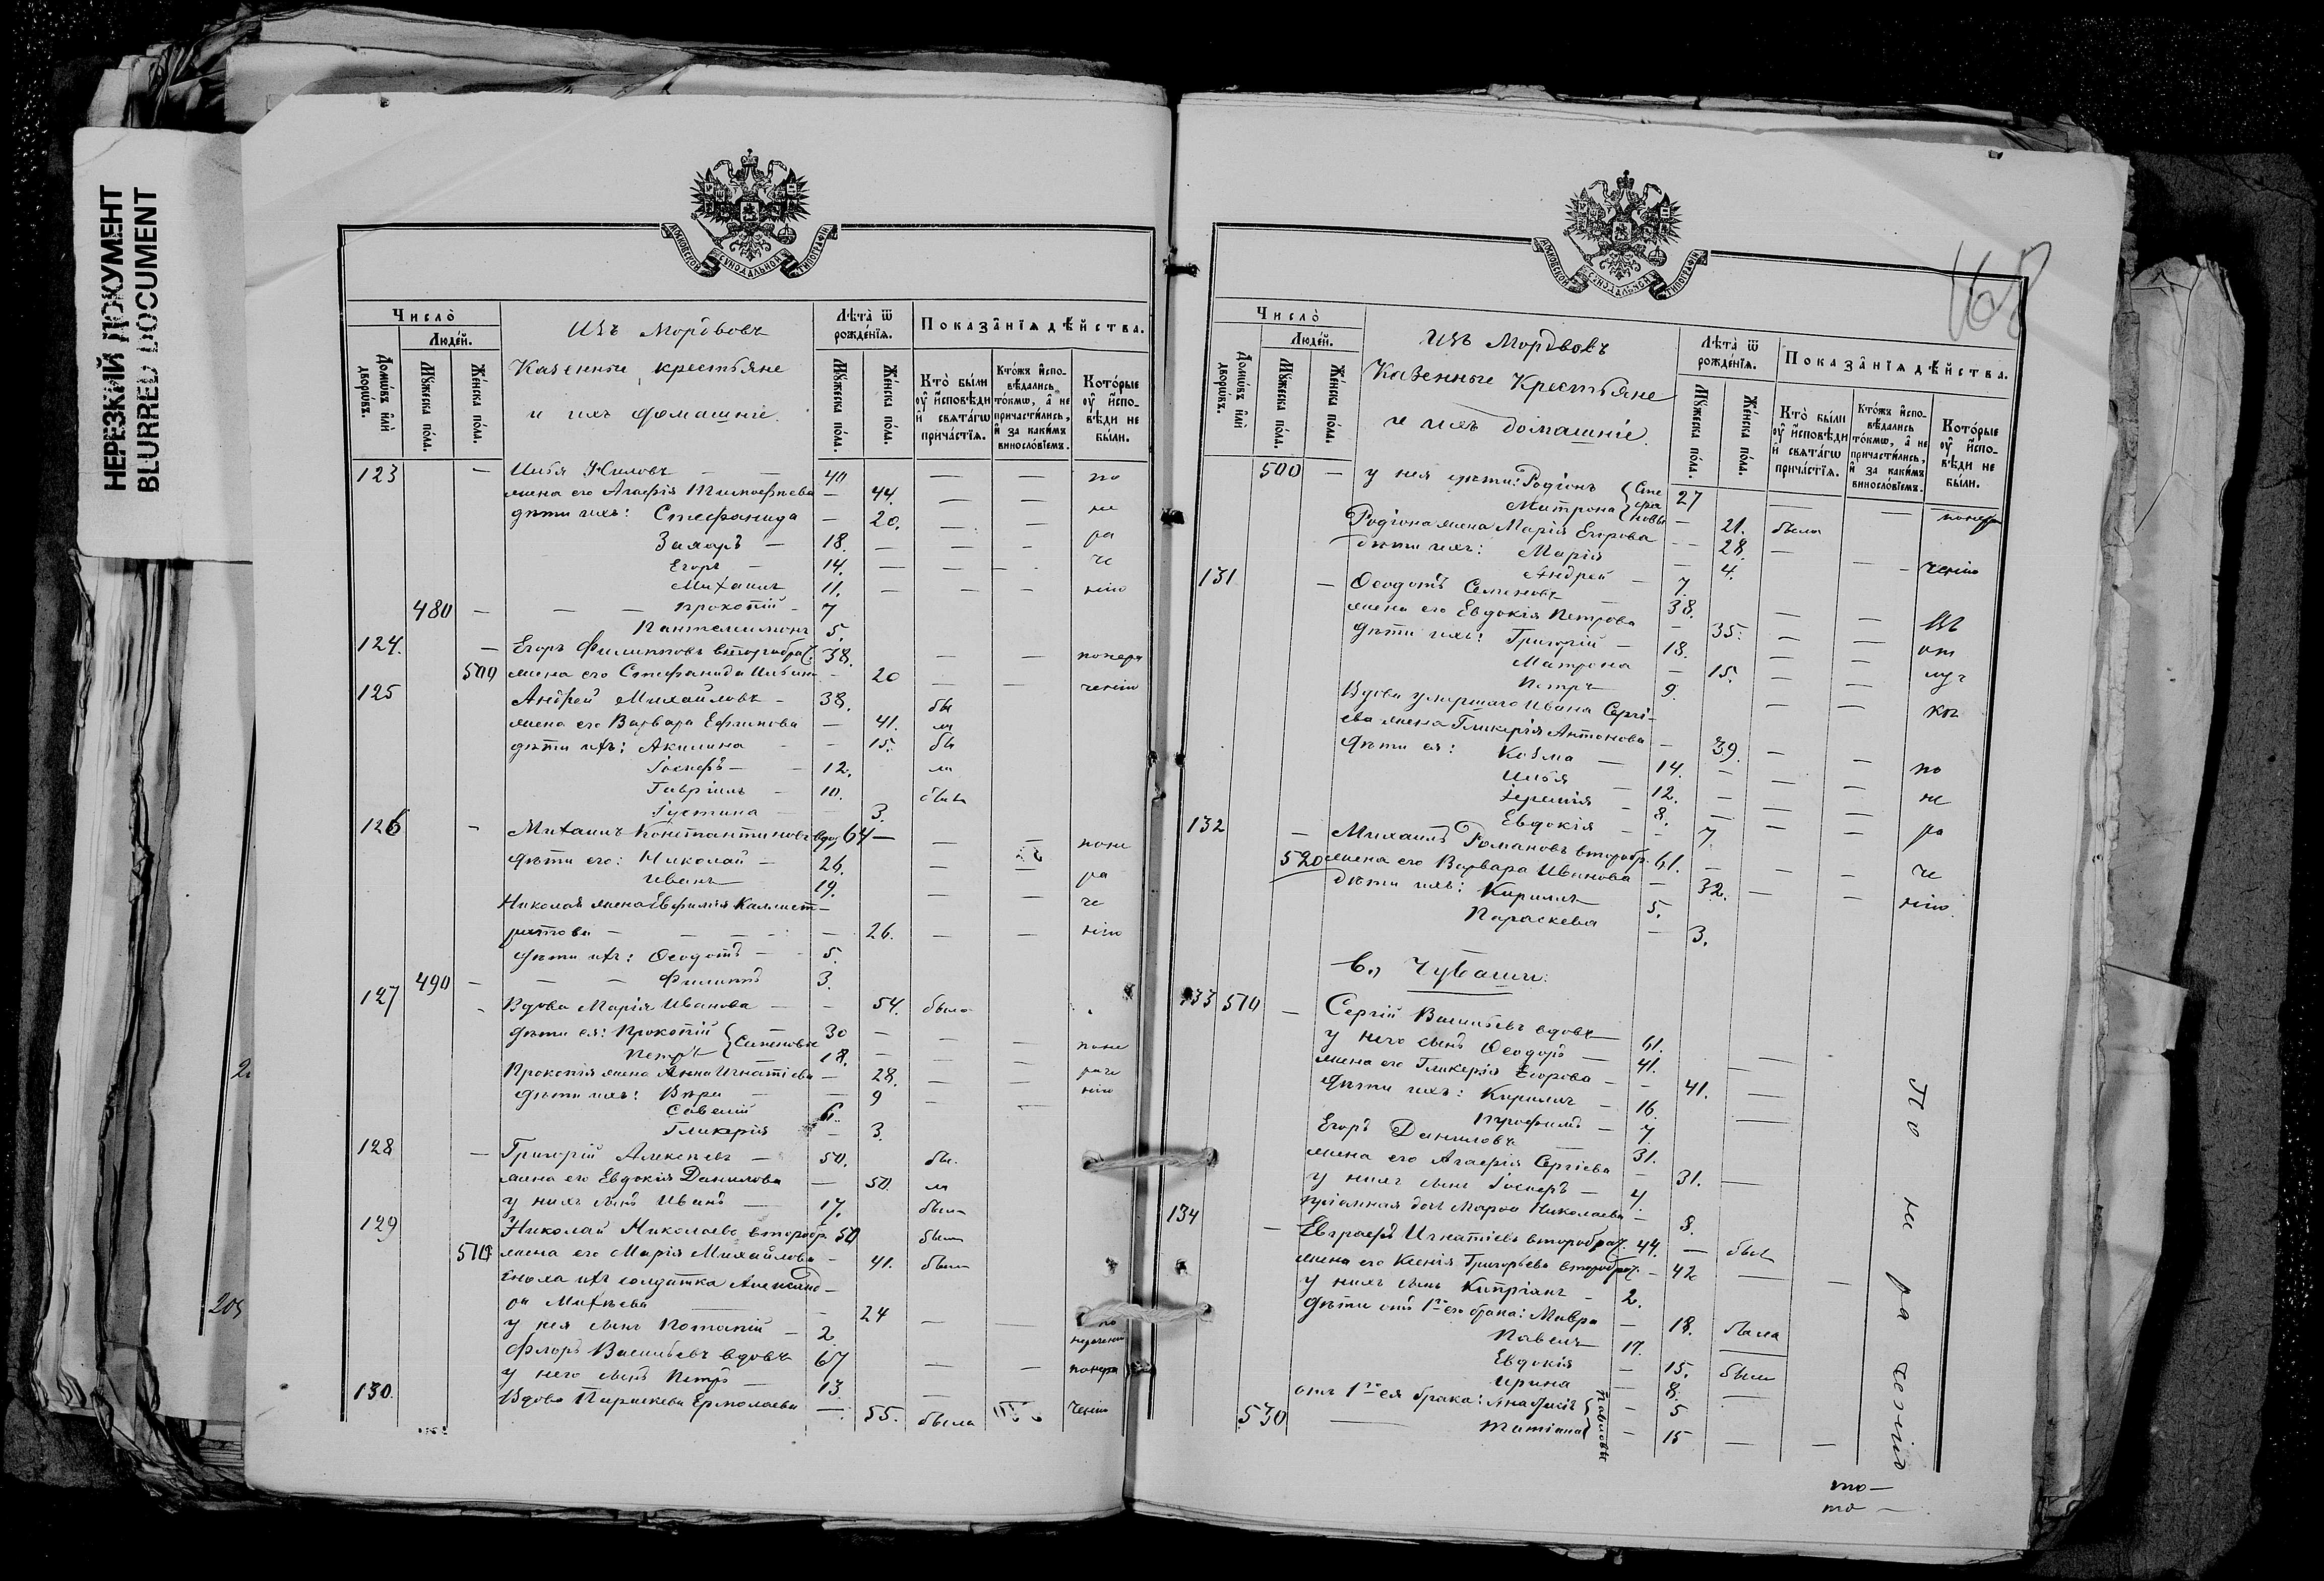 НЕРЕЗКИЙ ДОКУМЕНТ
BLURRED DOCUMENT
МОСКОВСКОЙ СѴНОДАЛЬНОЙ ТИПОГРАФІИ
Число̀
Людéй.
Домѡ́въ и҆лѝ дворѡ́въ.
Мꙋ́жеска по́ла.
Же́нска по́ла.
Изъ Мордвовъ
Казенные крестьяне
и ихъ домашніе.
Лѣта̀ ѿ рожде́нїѧ.
Мꙋ́жеска по́ла.
Же́нска по́ла.
Показа̑нїѧ дѣ́йства.
Кто̀ бы́ли оу҆ и҆сповѣ́ди и҆ свѧта́гѡ прича́стїѧ.
Кто́жъ и҆спо-вѣ́дались то́кмѡ, а҆ не причасти́лись, и҆ за каки́мъ винослѡ́вїемъ.
Кото́рые оу҆ и҆спо-вѣ́ди не бы́ли.
123 — Илья Ниловъ — — 40 — — по
жена его Агафія Тимофеева — 44. — — не
дѣти ихъ: Стефанида — 20. — — ра
Захаръ — 18. — — — че
Егоръ — 14. — — —
Михаилъ 11. — — — нію
480 — — — Прокопій — 7
Пантелеимонъ 5.
124. — Егоръ Филипповъ второбрач. 38. — — понера
500 жена его Стефанида Ильина — 20 — — ченію
125 Андрей Михайловъ — 38. бы
жена его Варвара Ефимова — 41. ли
дѣти ихъ: Акилина — — 15. бы
Іосифъ — — 12. ли
Гавріилъ — 10. были
Іустина — 3.
126 — Михаилъ Константиновъ вдов. 64 — — — поне
дѣти его: Николай — 26. — — ра
Иванъ 19. — — че
Николая жена Евфимія Каллист-
ратова — — — — 26. — — нію
дѣти ихъ: Ѳеодотъ — — 5.
490 — — — Филиппъ 3.
127 - Вдова Марія Иванова — — 54. была
дѣти ея: Прокопій { Семеновы 30 — — — поне
Петръ 18. — — — раче
Прокопія жена Анна Игнатіева — 28. — — нію
дѣти ихъ: Вѣра — — 9 — —
Савелій 6.
Гликерія — 3.
128 — Григорій Алексѣевъ — 50. бы.
жена его Евдокія Данилова — 50. ли
у нихъ сынъ Иванъ — 17. былъ
129 Николай Николаевъ второбр. 50 былъ
510 жена его Марія Михайлова — 41. была
сноха ихъ солдатка Александ-
ра Михѣева — — 24 — — по
у нея сынъ Потапій — 2. нераченію
Флоръ Васильевъ вдовъ 67 — — понера
у него сынъ Петръ — 13. —
130. Вдова Параскева Ермолаева — 55. была ченію
168
МОСКОВСКОЙ СѴНОДАЛЬНОЙ ТИПОГРАФІИ
Число̀
Людéй.
Домѡ́въ и҆лѝ дворѡ́въ.
Мꙋ́жеска по́ла.
Же́нска по́ла.
Изъ Мордвовъ
Казенные Крестьяне
и ихъ домашніе.
Лѣта̀ ѿ рожде́нїѧ.
Мꙋ́жеска по́ла.
Же́нска по́ла.
Показа̑нїѧ дѣ́йства.
Кто̀ бы́ли оу҆ и҆сповѣ́ди и҆ свѧта́гѡ прича́стїѧ.
Кто́жъ и҆спо-вѣ́дались то́кмѡ, а҆ не причасти́лись, и҆ за каки́мъ винослѡ́вїемъ.
Кото́рые оу҆ и҆спо-вѣ́ди не бы́ли.
500 — у нея дѣти: Родіонъ { Сте 27 — — понера
Матрона { фановы — 21. была
Родіона жена Марія Егорова — — 28. — — — ченію
дѣти ихъ: Марія — 4.
Андрей — 7.
131 — Ѳеодотъ Семеновъ — 38. — — въ
жена его Евдокія Петрова — 35. — — от
дѣти ихъ: Григорій — 18. — — луч
Матрона — 15. — —
Петръ 9. — — кѣ
Вдова умершаго Ивана Сергі-
ева жена Гликерія Антонова — 39. — — по
дѣти ея: Козма — 14. — — — не
Илья 12. — — —
Іеремія — 8. — — — ра
Евдокія — — 7.
132 — Михаилъ Романовъ второбр. 61. — — — че
520 жена его Варвара Иванова — 32. — — нію.
дѣти ихъ: Кириллъ 5.
Параскева — 3.
в.) Чуваши:
133 510 — Сергій Васильевъ вдовъ 61. —
у него сынъ Ѳеодоръ — 41. —
жена его Гликерія Егорова — — 41. —
дѣти ихъ: Кириллъ — 16. —
Трофимъ — 7.
Егоръ Даниловъ — 31.
жена его Агафія Сергіева — 31. —
у нихъ сынъ Іосифъ — 4.
пріемная дочь Марѳа Николаева — 8.
134 — Евграфъ Игнатіевъ второбрач. 44. — былъ
жена его Ксенія Григорьева второбрач. — 42 — —
у нихъ сынъ Кипріанъ — 2.
дѣти отъ 1го его брака: Мавра — 18. была
Павелъ 17. —
Евдокія — 15. были
Ирина — 8. —
отъ 1го ея брака: { Павловы — 5
530 — Татіана — 15 — —
По не ра ченію
то —
то —